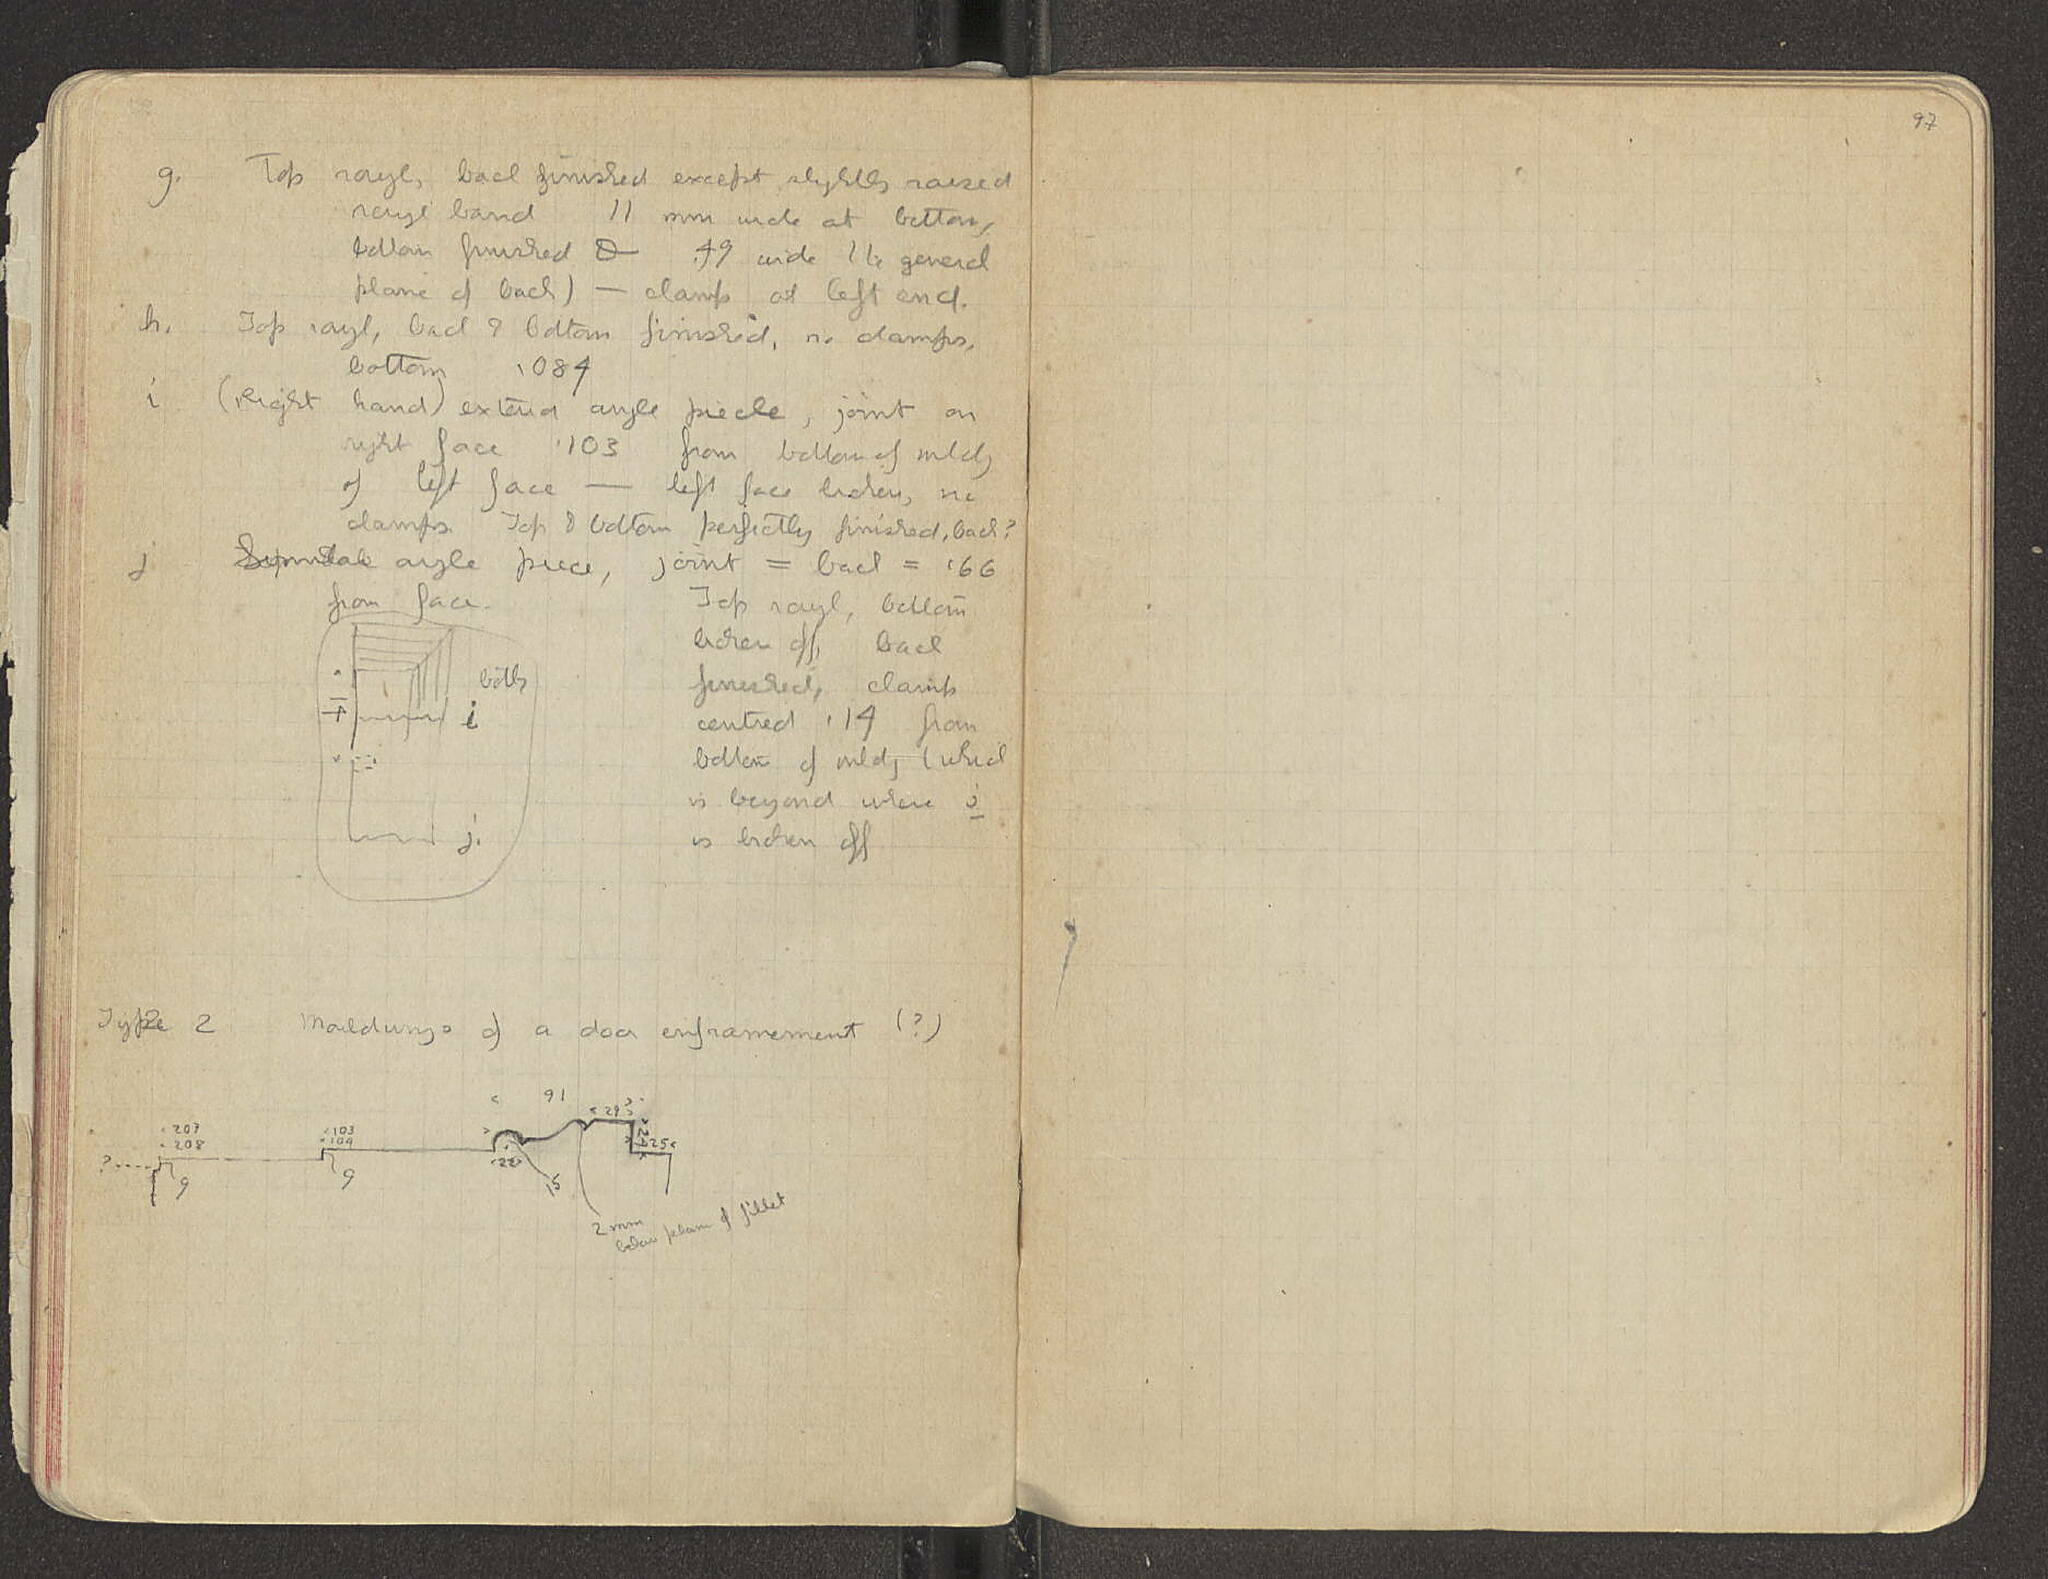 97
g. Top rough, back finished except slightly raised
rough band 11 mm wide at bottom,
bottom finished & .49 wide (to general
plane of back) — clamp at left end.
h. Top rough, back & bottom finished, no clamps,
bottom .084
i (Right hand) external angle piece, joint on
right face .103 from bottom of mldg
of left face — left face broken, no
clamps. Top & bottom perfectly finished, back?
j angle piece, joint = back = .66
from face.
Top rough, bottom
broken off, back
finished, clamp
centred .14 from
bottom of mldg (which
is beyond where i
is broken off
both
i
j.
Type 2 Mouldings of a door enframement (?)
91
29
207
208
103
104
25
22
?
9
9
15
2 mm
below plane of fillet